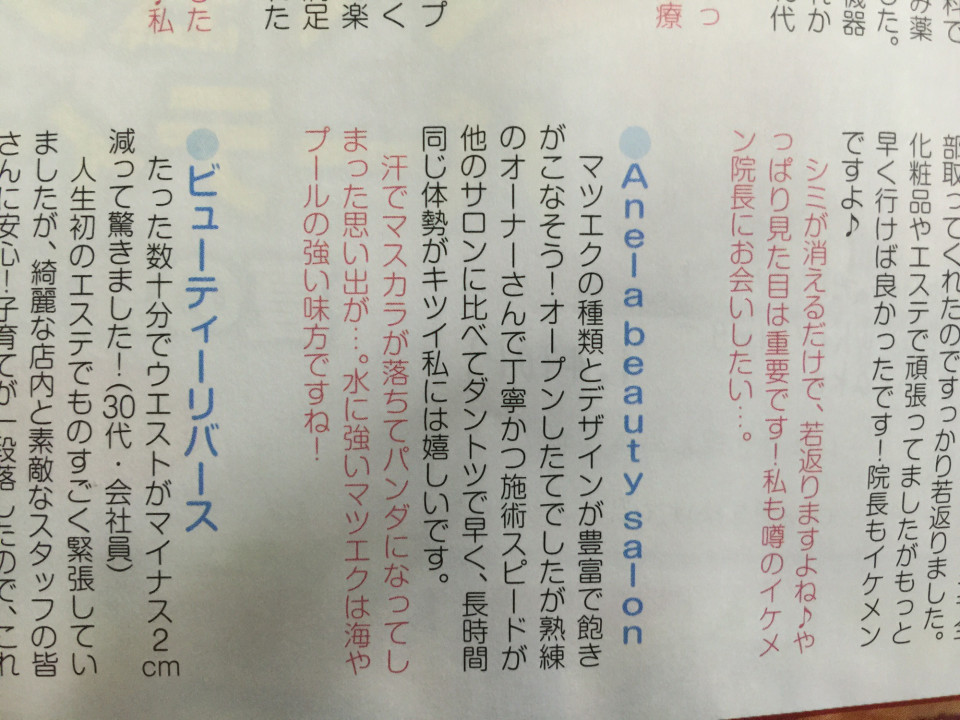 科で
み薬
した。
機器
れか
代
っ
療
プ
く
楽
足
れた
した
私
部取ってくれたのですっかり若返りました。
化粧品やエステで頑張ってましたがもっと
早く行けば良かったです!院長もイケメン
ですよ♪
シミが消えるだけで、若返りますよね♪や
っぱり見た目は重要です!私も噂のイケメ
ン院長にお会いしたい…。
●Anela beauty salon
マツエクの種類とデザインが豊富で飽き
がこなそう!オープンしたてでしたが熟練
のオーナーさんで丁寧かつ施術スピードが
他のサロンに比べてダントツで早く、長時間
同じ体勢がキツイ私には嬉しいです。
汗でマスカラが落ちてパンダになってし
まった思い出が…。水に強いマツエクは海や
プールの強い味方ですね!
●ビューティーリバース
たった数十分でウエストがマイナス2cm
減って驚きました!(30代・会社員)
人生初のエステでものすごく緊張してい
ましたが、綺麗な店内と素敵なスタッフの皆
さんに安心!子育てが一段落したので、これ